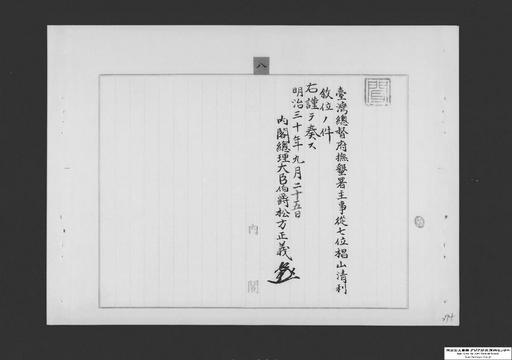 八
臺灣總督府撫墾署主事從七位椙山清利
敘位ノ件
右謹テ奏ス
明治三十年九月二十五日
內閣總理大臣伯爵松方正義
內閣